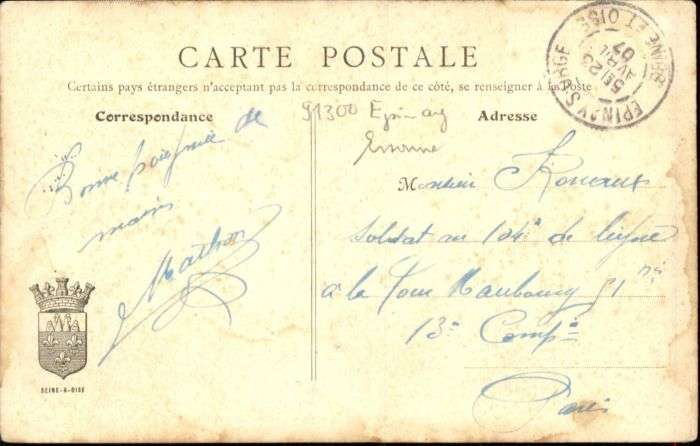 CARTE POSTALE
Certains pays étrangers n'acceptant pas la correspondance de ce côté, se renseigner à la Poste
Correspondance
Adresse
91300 Epinay
Essonne
EPINAY S/ORGE
SEINE ET OISE
5E
23
AVRIL
07
Bonne poignée de
mains
Mathon
Monsieur
Soldat au 104e de ligne
à la Tour Maubourg
13e Compie
Paris
SEINE-&-OISE